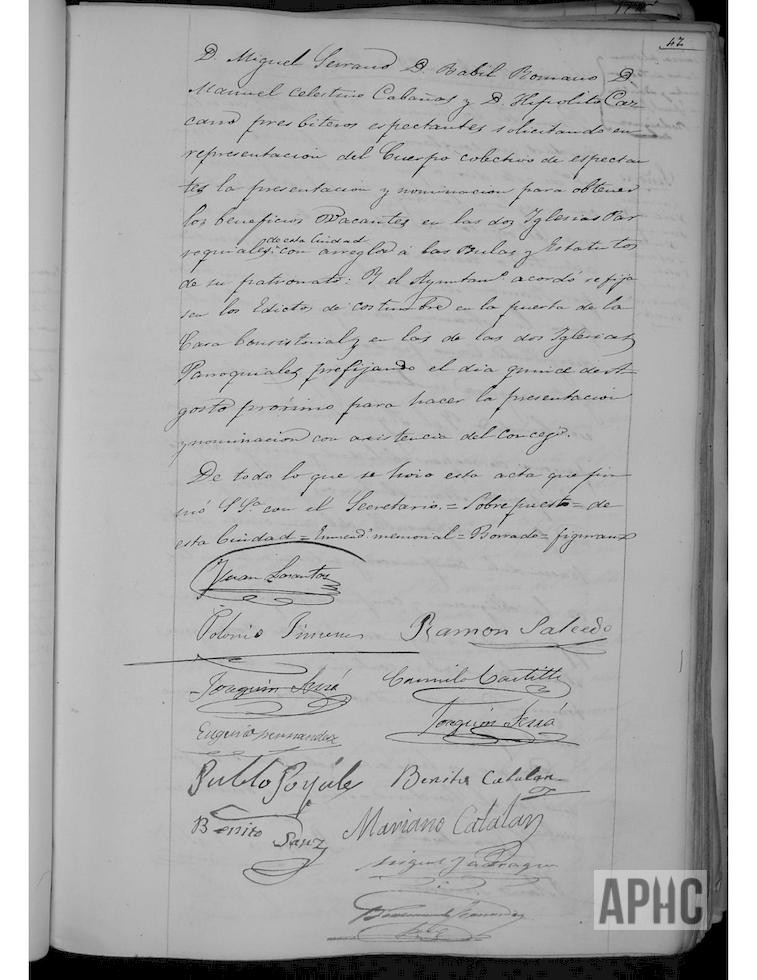 42
D. Miguel Serrano D. Babil Romano D.
Manuel Celestino Cabañas y D. Hipolito Caz
cano presbiteros espectantes solicitando en
representacion del Cuerpo colectivo de espectan
tes la presentacion y nominacion para obtener
los beneficios Vacantes en las dos Iglesias Par
roquiales de esta Ciudad con arreglo á las Bulas y Estatutos
de su patronato: Y el Ayuntamo acordó se fija
sen los Edictos de costumbre en la puerta de la
Casa Consistorial y en las de las dos Iglesias
Parroquiales prefijando el dia quince de
gosto procsimo para hacer la presentacion
y nominacion con asistencia del concejo.
De todo lo que se hizo esta acta que fir
mó S Sa con el Secretario. = Sobrepuesto = de
esta Ciudad = Enmendo memorial = Borrado = figuraux
Juan
Polonio Ximenez Ramon Salcedo
Joaquin Camilo Castillo
Eugenio Hernandez Joaquin
Pablo Poyales Benito Catalan
Benito Sanz Mariano Catalan
Miguel
APHC